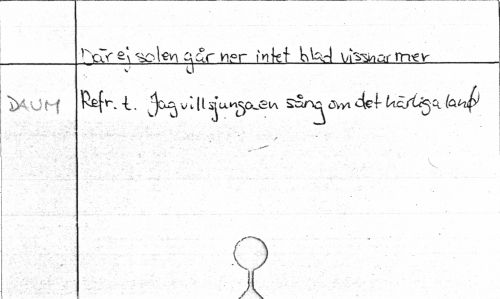 Där ej solen går ner intet blad vissnar mer
DAUM Refr. t. Jag vill sjunga en sång om det härliga land